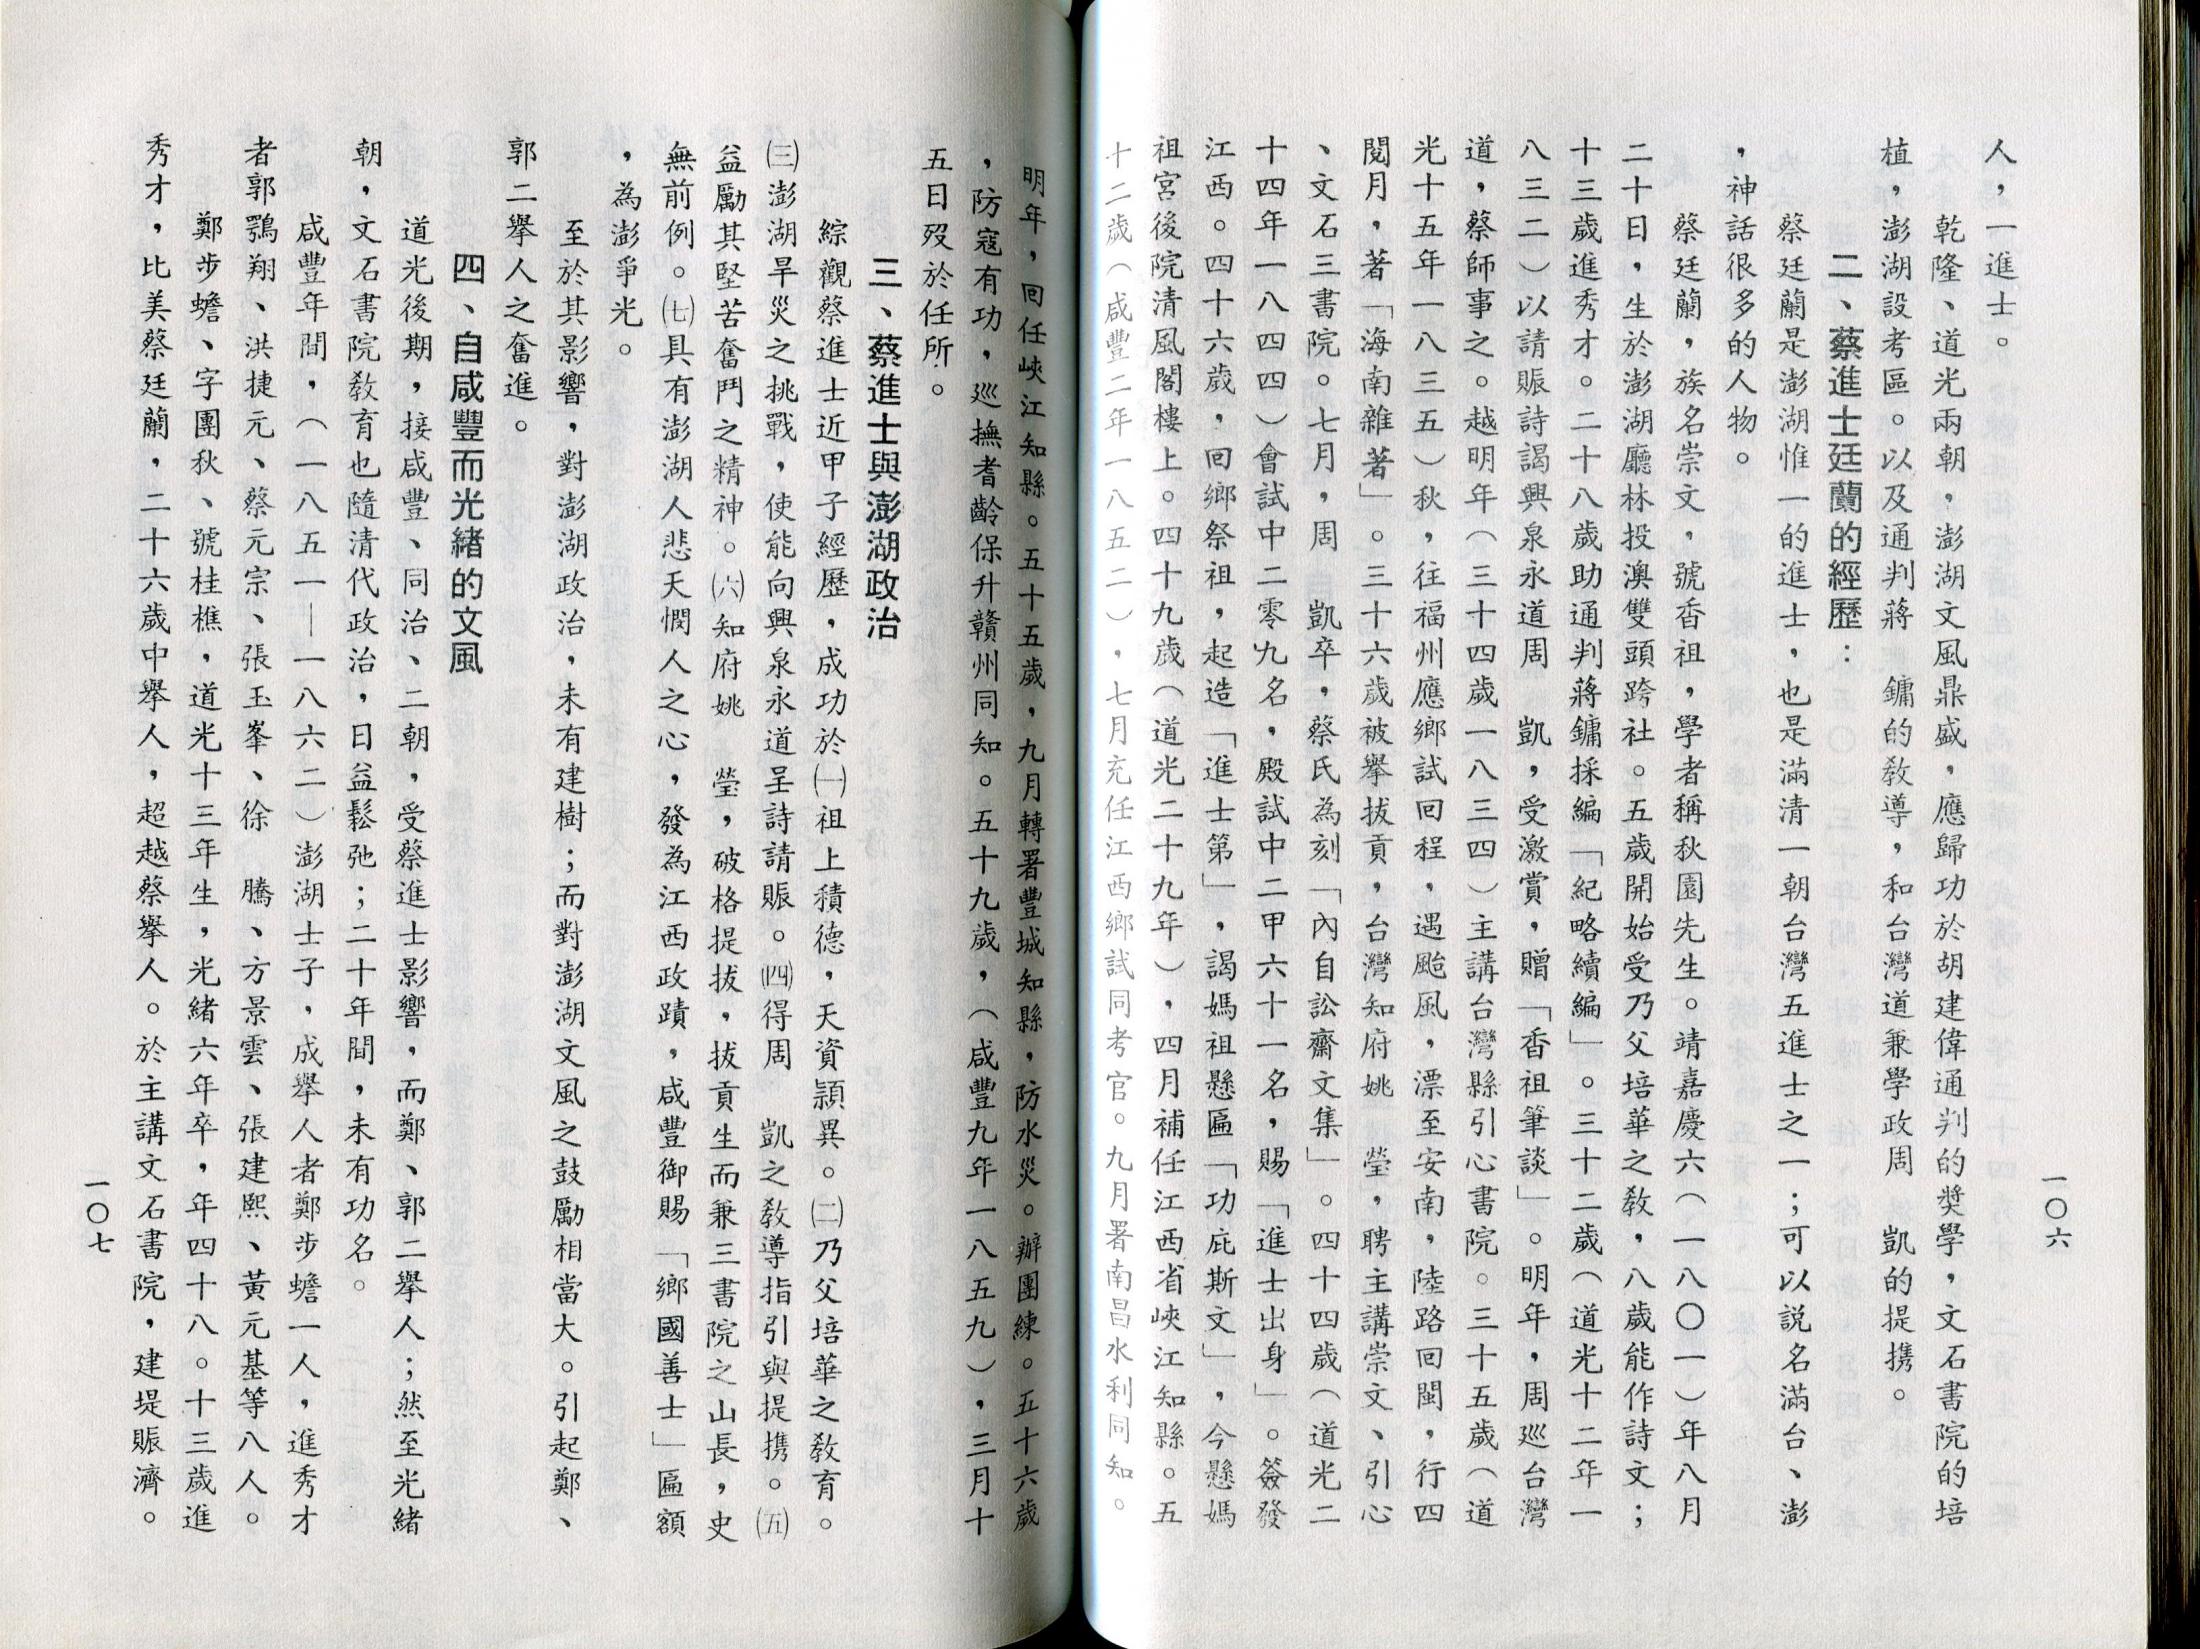 一〇六
人,一進士。
乾隆、道光兩朝,澎湖文風鼎盛,應歸功於胡建偉通判的獎學,文石書院的培
植,澎湖設考區。以及通判蔣 鏞的教導,和台灣道兼學政周 凱的提携。
二、蔡進士廷蘭的經歷:
蔡廷蘭是澎湖惟一的進士,也是滿清一朝台灣五進士之一;可以說名滿台、澎
,神話很多的人物。
蔡廷蘭,族名崇文,號香祖,學者稱秋園先生。靖嘉慶六(一八〇一)年八月
二十日,生於澎湖廳林投澳雙頭跨社。五歲開始受乃父培華之教,八歲能作詩文;
十三歲進秀才。二十八歲助通判蔣鏞採編「紀略續編」。三十二歲(道光十二年一
八三二)以請賑詩謁興泉永道周 凱,受激賞,贈「香祖筆談」。明年,周巡台灣
道,蔡師事之。越明年(三十四歲一八三四)主講台灣縣引心書院。三十五歲(道
光十五年一八三五)秋,往福州應鄉試回程,遇颱風,漂至安南,陸路回閩,行四
閱月,著「海南雜著」。三十六歲被舉拔貢,台灣知府姚 瑩,聘主講崇文、引心
、文石三書院。七月,周 凱卒,蔡氏為刻「內自訟齋文集」。四十四歲(道光二
十四年一八四四)會試中二零九名,殿試中二甲六十一名,賜「進士出身」。簽發
江西。四十六歲,回鄉祭祖,起造「進士第」,謁媽祖懸匾「功庇斯文」,今懸媽
祖宮後院清風閣樓上。四十九歲(道光二十九年),四月補任江西省峽江知縣。五
十二歲(咸豐二年一八五二),七月充任江西鄉試同考官。九月署南昌水利同知。
明年,回任峽江知縣。五十五歲,九月轉署豐城知縣,防水災。辦團練。五十六歲
,防寇有功,巡撫耆齡保升贛州同知。五十九歲,(咸豐九年一八五九),三月十
五日歿於任所。
三、蔡進士與澎湖政治
綜觀蔡進士近甲子經歷,成功於㈠祖上積德,天資頴異。㈡乃父培華之教育。
㈢澎湖旱災之挑戰,使能向興泉永道呈詩請賑。㈣得周 凱之教導指引與提携。㈤
益勵其堅苦奮鬥之精神。㈥知府姚 瑩,破格提拔,拔貢生而兼三書院之山長,史
無前例。㈦具有澎湖人悲天憫人之心,發為江西政蹟,咸豐御賜「鄉國善士」匾額
,為澎爭光。
至於其影響,對澎湖政治,未有建樹;而對澎湖文風之鼓勵相當大。引起鄭、
郭二舉人之奮進。
四、自咸豐而光緒的文風
道光後期,接咸豐、同治、二朝,受蔡進士影響,而鄭、郭二舉人;然至光緒
朝,文石書院教育也隨清代政治,日益鬆弛;二十年間,未有功名。
咸豐年間,(一八五一—一八六二)澎湖士子,成舉人者鄭步蟾一人,進秀才
者郭鶚翔、洪捷元、蔡元宗、張玉峯、徐 騰、方景雲、張建熙、黃元基等八人。
鄭步蟾、字團秋、號桂樵,道光十三年生,光緒六年卒,年四十八。十三歲進
秀才,比美蔡廷蘭,二十六歲中舉人,超越蔡舉人。於主講文石書院,建堤賑濟。
一〇七